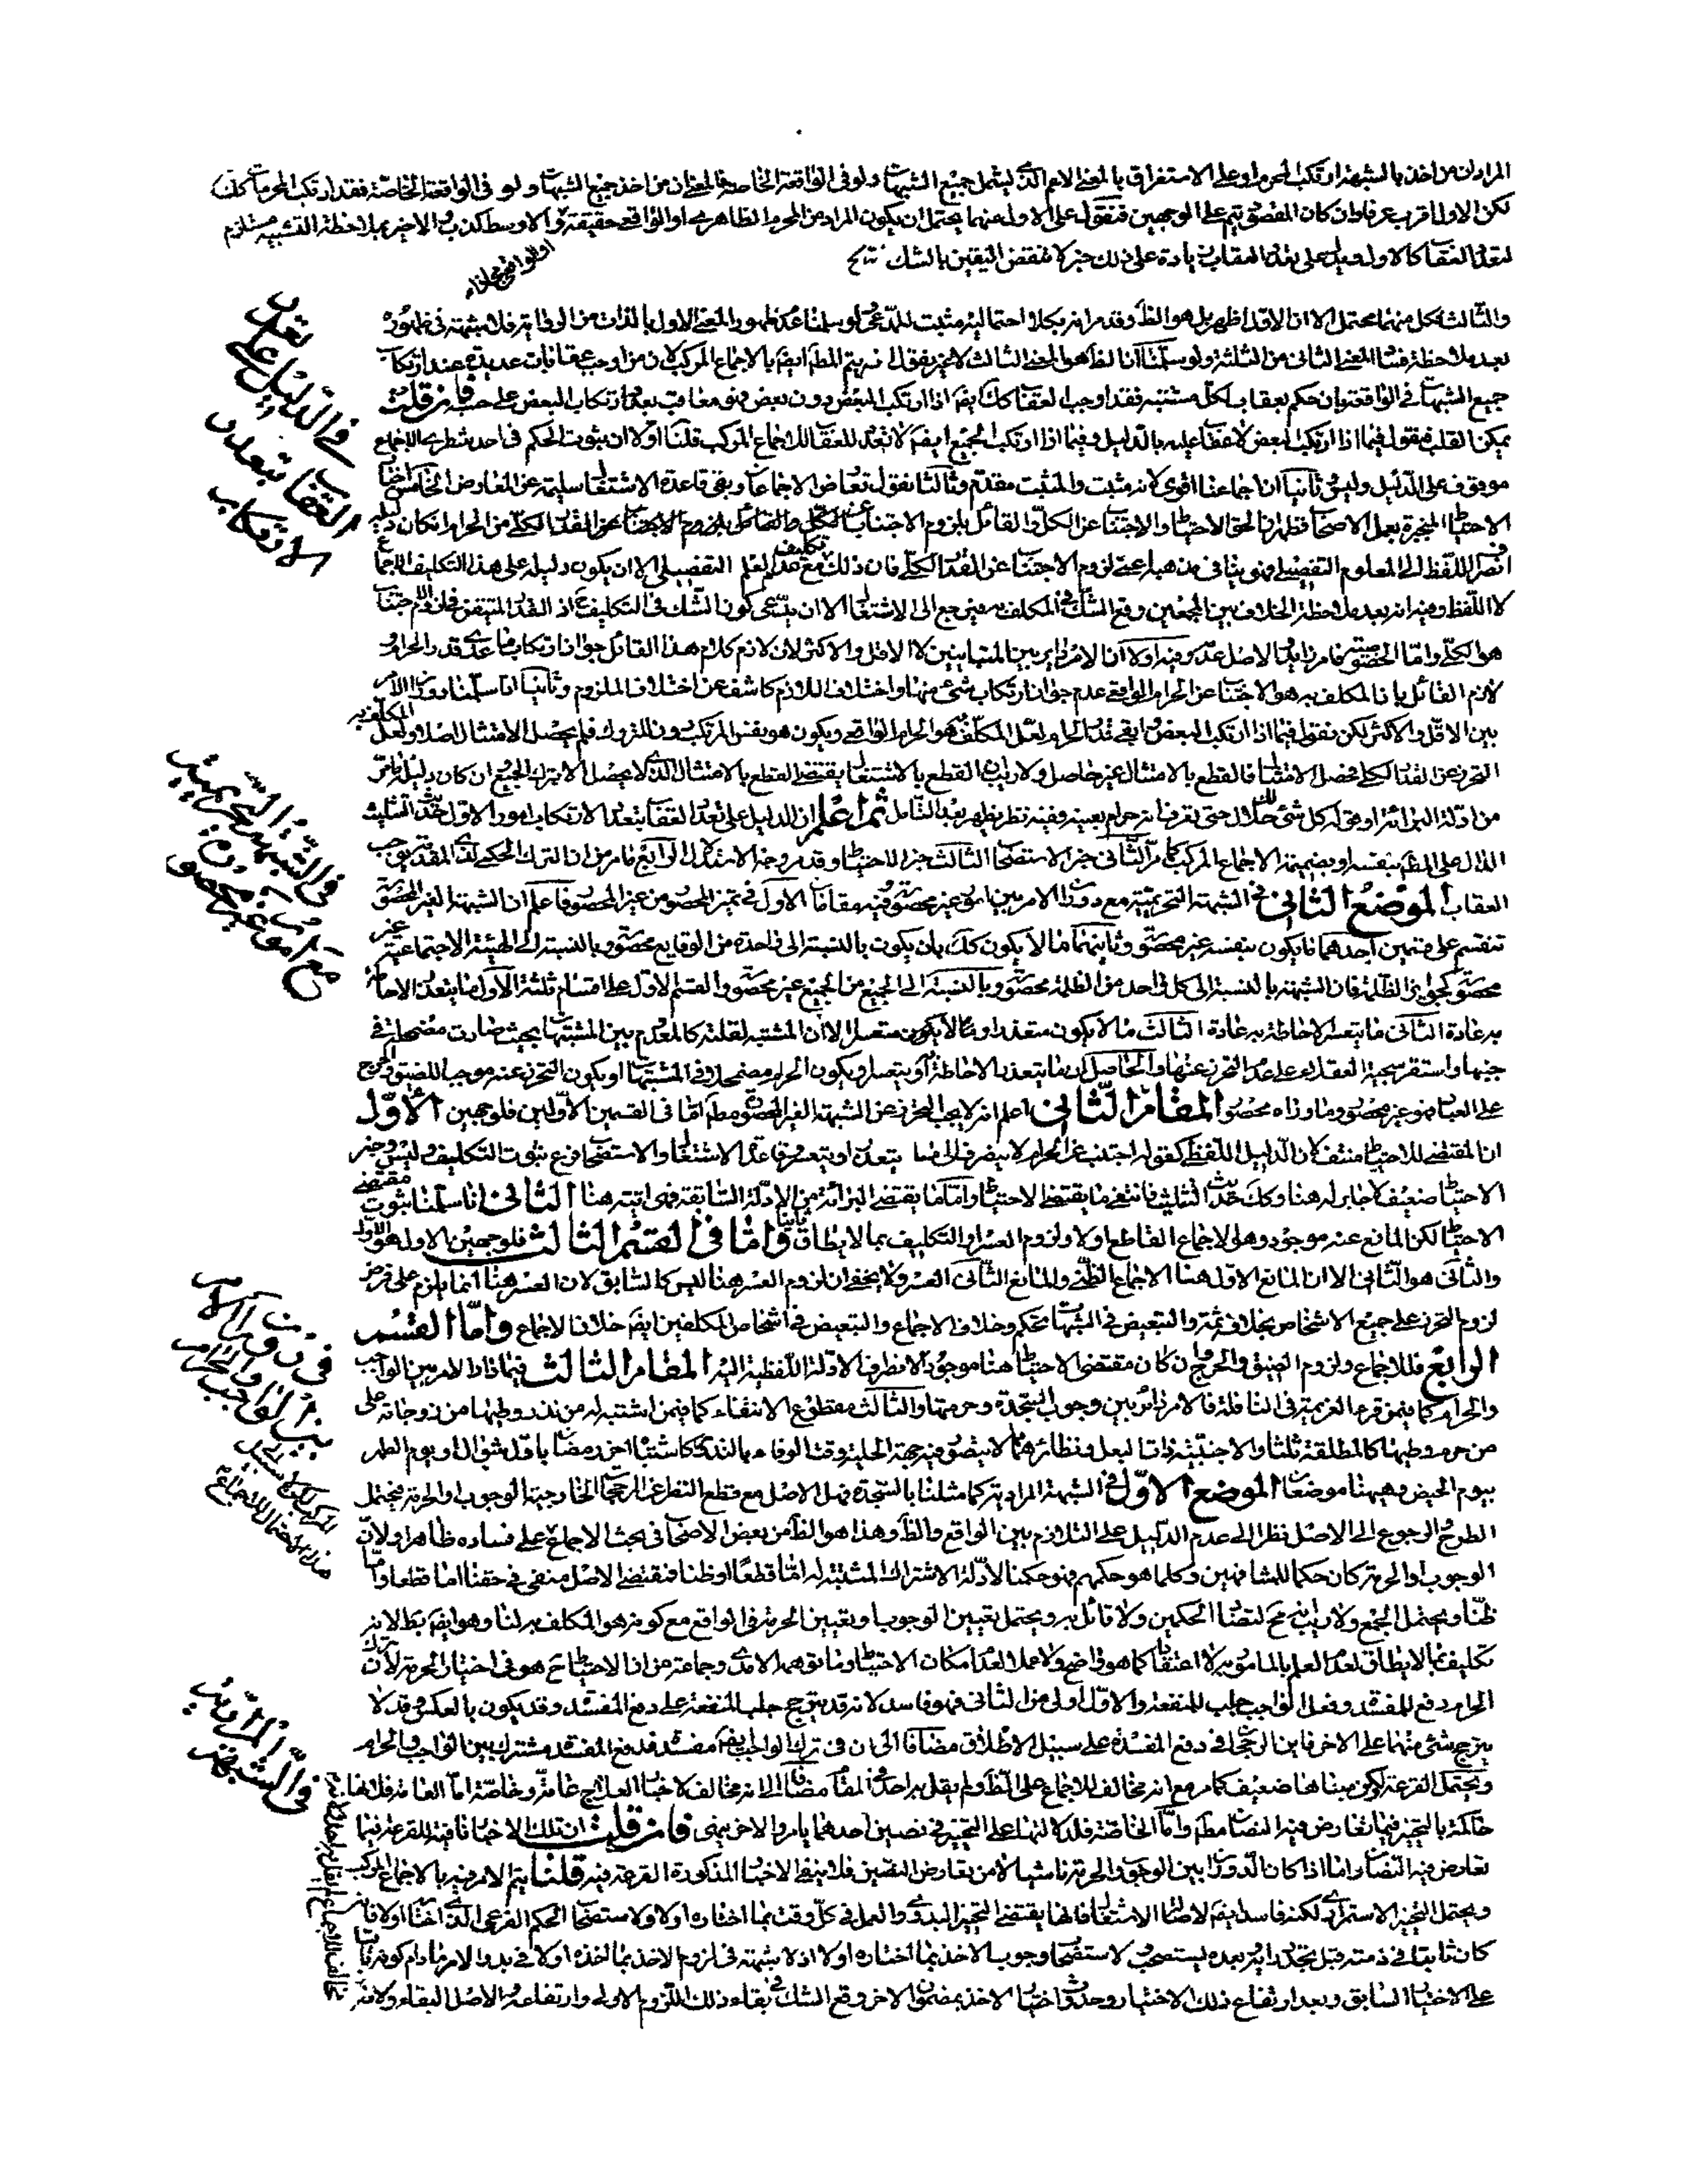 المراد ان من اخذ بالشبهة ارتكب المحرم او على الاستغراق بالمعنى الاعم الذى يشمل جميع الشبهات ولو فى الواقعة الخاصة فالمعنى ان من اخذ جميع الشبهات ولو فى الواقعة الخاصة فقد ارتكب المحرمات كلا
لكن الاول اقرب عرفا وان كان المقصود يتم على الوجهين فنقول على الاول منهما يحتمل ان يكون المراد من المحرم الظاهرى او الواقعى حقيقة والاوسط كذب والاخير بملاحظة التشبيه مستلزم
لتعدد العقاب كالاول على تعدد العقاب زيادة على ذلك خبر لا تنقض اليقين بالشك
او الواقعى مجازا
والثالث كل منهما محتمل الا ان الاول اظهر بل هو الظ وقد مر انه بكلا احتماليه مثبت للمدعى ولو سلمنا عدم ظهور المعنى الاول بالذات من الرواية فلا شبهة فى ظهوره
بعد ملاحظة المعنى الثانى من الثلثة ولو سلمنا ان الظ هو المعنى الثالث الاخير فنقول انه يتم المط ايضا بالاجماع المركب لان من اوجب عقابات عديدة عند ارتكاب
جميع المشبهات فى الواقعة وان حكم بعقاب لكل مشتبه فقد اوجب العقاب كك ايضا اذا ارتكب البعض دون بعض فهو معاقب بعد ارتكاب البعض على حسبه فان قلت
يمكن القلب فيقول فيما اذا ارتكب البعض لا عقاب عليه بالدليل وفيما اذا ارتكب الجميع ايضا لا تعدد للعقاب للاجماع المركب قلنا اولا ان ثبوت الحكم فى احد شطرى الاجماع
موقوف على الدليل وليس وثانيا ان اجماعنا اقوى لانه مثبت والمثبت مقدم وثالثا نقول تعارض الاجماعان وبقى قاعدة الاشتغال سليمة عن المعارض الخامس اخبار
الاحتياط المنجبرة بعمل الاصحاب فظهر ان الحق الاحتياط والاجتناب عن الكل والقائل بلزوم الاجتناب عن القدر الكلى من الحرام ان كان دليله
انصراف اللفظ الى المعلوم التفصيلى فهو ينافى مذهبه اعنى لزوم الاجتناب عن القدر الكلى فان ذلك تكليف مع عدم العلم التفصيلى الا ان يكون دليله على هذا التكليف الاجماع
لا اللفظ وفيه انه بعد ملاحظة الخلاف بين المجمعين وقع الشك فى المكلف به فيرجع الى الاشتغال الا ان يدعى كون الشك فى التكليف اذ القدر المتيقن لزوم اجتناب
هو الكلى واما الخصوصية فامر زايد الاصل عدمه وفيه اولا ان الامر دائر بين المتباينين لا الاقل والاكثر لان لازم كلام هذا القائل جواز ارتكاب ما عدى قدر الحرام و
لازم القائل بان المكلف به هو الاجتناب عن الحرام الواقعى عدم جواز ارتكاب شئ منهما واختلاف اللازم كاشف عن اختلاف الملزوم وثانيا انا سلمنا دوران الامر
بين الاقل والاكثر لكن نقول فيما اذا ارتكب البعض وابقى قدر الحرام لعل المكلف به هو الحرام الواقعى ويكون هو نفس المرتكب دون المتروك فلم يحصل الامتثال اصلا ولعل المكلف به
التحرز عن القدر الكلى فحصل الامتثال فالقطع بالامتثال غير حاصل ولا ريب ان القطع بالاشتغال يقتضى القطع بالامتثال الذى لا يحصل الا بترك الجميع ان كان دليله ما مر
من ادلة البرائة او قوله كل شئ لك حلال حتى تعرف انه حرام بعينه وفيه نظر يظهر بعد التأمل ثم اعلم ان الدليل على تعدد العقاب بتعدد الارتكاب امور الاول حديث التثليث
الدال على المط بنفسه او بضميمة الاجماع المركب كما مر الثانى خبر الاستصحاب الثالث خبر الاحتياط وقد مر وجه الاستدلال الرابع ما مر من ان الترك الحكمى لذى المقدمة يوجب
العقاب الموضع الثانى فى الشبهة التحريمية مع دوران الامر بين امور غير محصورة وفيه مقامات الاول فى تميز المحصور من غير المحصور فاعلم ان الشبهة الغير المحصورة
تنقسم على قسمين احدهما ما يكون بنفسه غير محصور وثانيهما ما لا يكون كك بان يكون بالنسبة الى واحدة من الوقايع محصور وبالنسبة الى الهيئة الاجتماعية غير
محصور كجوايز الظلمة فان الشبهة بالنسبة الى كل واحد من الظلمة محصور وبالنسبة الى الجميع من الجميع غير محصور والقسم الاول على اقسام ثلثة الاول ما يتعذر الاحاطة
به عادة الثانى ما يتعسر الاحاطة به عادة الثالث ما لا يكون متعذرا وما لا يكون متعسرا الا ان المشتبه لقلته كالمعدوم بين المشتبهات بحيث صارت مضمحلة فى
جنبها واستقر سجية العقلاء على عدم التحرز عنها والحاصل ان ما يتعذر الاحاطة او يتعسر او يكون الحرام مضمحلا فى المشتبهات او يكون التحرز عنه موجبا للضيق والحرج
على العباد فهو غير محصور وما وراه محصور المقام الثانى اعلم انه لا يجب التحرز عن الشبهة الغير المحصورة مط اما فى القسمين الاولين فلوجهين الاول
ان المقتضى للاحتياط منتف لان الدليل اللفظى كقوله اجتنب عن الحرام لا ينصرف الى ما يتعذر او يتعسر وقاعدة الاشتغال والاستصحاب فرع ثبوت التكليف وليس وخبر
الاحتياط ضعيف لا جابر له هنا وكك حديث التثليث فانتفى ما يقتضى الاحتياط واما ما يقتضى البرائة من الادلة السابقة فهى اتية هنا الثانى انا سلمنا ثبوت مقتضى
الاحتياط لكن المانع عنه موجود وهو الاجماع القاطع اولا ولزوم العسر او التكليف بما لا يطاق ثانيا واما فى القسم الثالث فلوجهين الاول هو الاول
والثانى هو الثانى الا ان المانع الاول هنا الاجماع الظنى والمانع الثانى العسر ولا يخفى ان لزوم العسر هنا ليس كالسابق لان العسر هنا انما يلزم على فرض
لزوم التحرز على جميع الاشخاص بخلاف ثمة والتبعيض فى المشبهات تحكم وخلاف الاجماع والتبعيض فى اشخاص المكلفين ايضا خلاف الاجماع واما القسم
الرابع فللاجماع ولزوم الضيق والحرج وان كان مقتضى الاحتياط هنا موجودا لانصراف الادلة اللفظية اليه المقام الثالث فيما دار الامر بين الواجب
والحرام كما فيمن قرء العزيمة فى النافلة فالامر دائر بين وجوب السجدة وحرمتها والثالث مقطوع الانتفاء كما فيمن اشتبه له من نذر وطيها من زوجاته على
من حرم وطيها كالمطلقة ثلثا والاجنبية ذات البعل ونظائرهما لا يتصور فيه جهة الحلية وقت الوفاء بالنذر كاشتباه اخر رمضان باول شوال او يوم الطهر
بيوم الحيض وههنا موضعان الموضع الاول فى الشبهة المرادية كما مثلنا بالسجدة فهل الاصل مع قطع النظر عن المرجحات الخارجية الوجوب او الحرمة فيحتمل
الطرح والرجوع الى الاصل نظرا الى عدم الدليل على التلازم بين الواقع والظ وهذا هو الظ من بعض الاصحاب فى بحث الاجماع على فساده ظاهر اولا لان
الوجوب او الحرمة كان حكما للمشافهين وكلما هو حكمهم فهو حكمنا لادلة الاشتراك المثبتة له اما قطعا او ظنا فمقتضى الاصل منفى فى حقنا اما قطعا واما
ظنا ويحتمل الجمع ولا ريب فى تضاد الحكمين ولا قائل به ويحتمل تعيين الوجوب او تعيين الحرمة فى الواقع مع كونه هو المكلف به لنا وهو ايضا بط لانه
تكليف بما لا يطاق لعدم العلم بالمامور به لا اعتقادا كما هو واضح ولا عملا لعدم امكان الاحتياط وما توهمه الامدى وجماعة من ان الاحتياط ح هو فى اختيار الحرمة لان ترك
الحرام دفع للمفسدة وفعل الواجب جلب للمنفعة والاول اولى من الثانى فهو فاسد لانه قد يترجح جلب المنفعة على دفع المفسدة وقد يكون بالعكس وقد لا
يترجح شئ منهما على الاخر فاين الرجحان فى دفع المفسدة على سبيل الاطلاق مضافا الى ان فى ترك الواجب ايضا مفسدة فدفع المفسدة مشترك بين الواجب والحرام
ويحتمل القرعة لكون مبناها ضعيف كما مر مع انه مخالف للاجماع على الظ ولم يقل به احد فى المقام مضافا الى انه مخالف لاخبار العلاج عامة وخاصة اما العامة فلانها
حاكمة بالتخيير فيما تعارض فيه النصان مط واما الخاصة فلدلالتها على التخيير فى نصين احدهما يامر والاخر ينهى فان قلت ان تلك الاخبار نافية للقرعة فيما
تعارض فيه النصان واما اذا كان الدوران بين الوجوب والحرمة ناشيا لا من تعارض النصين فلا ينفى الاخبار المذكورة القرعة فيه قلنا يتم الامر فيه بالاجماع المركب
ويحتمل التخيير الاستمرارى لكنه فاسد ايضا لاصالة الاشتغال فانها يقتضى التخيير البدوى والعمل فى كل وقت بما اختاره اولا ولاستصحاب الحكم الفرعى الذى اختار اولا فانه
كان ثابتا فى ذمته قبل تجدد رايه بعده ليستصحب لاستصحاب وجوب الاخذ بما اختاره اولا اذ لا شبهة فى لزوم الاخذ بما اخذه اولا فى بدو الامر ما دام كونه ثابتا
على الاختيار السابق وبعد ارتفاع ذلك الاختيار وحدوث اختيار الاخذ بمضمون الاخر وقع الشك فى بقاء ذلك اللزوم الاولى وارتفاعه والاصل البقاء ولانه
فى الدليل على
تعدد
العقاب بتعدد
الارتكاب
فى الشبهة التحريمية
مع امور غير محصورة
فى دوران الامر
بين الواجب والحرام
فى الشبهة
المرادية